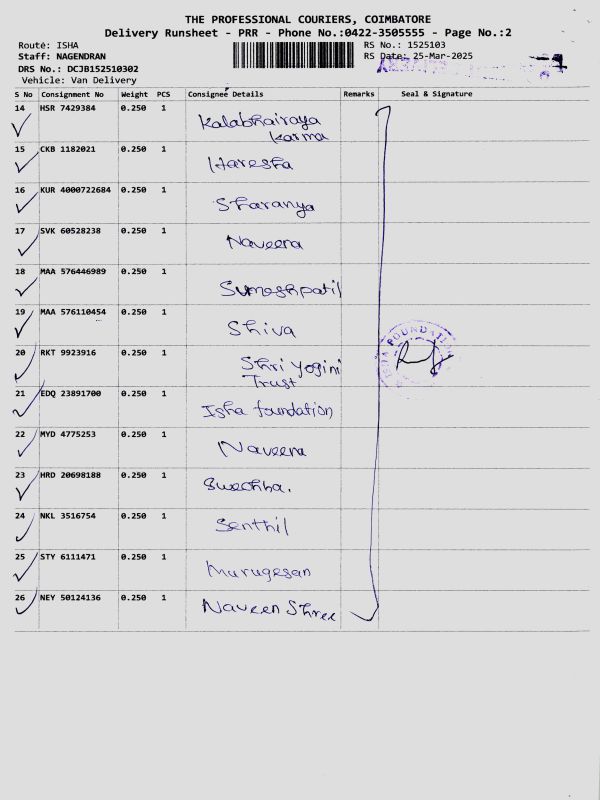 THE PROFESSIONAL COURIERS, COIMBATORE
Delivery Runsheet - PRR - Phone No.:0422-3505555 - Page No.:2
Route: ISHA RS No.: 1525103
Staff: NAGENDRAN RS Date: 25-Mar-2025
DRS No.: DCJB152510302
Vehicle: Van Delivery
S No Consignment No Weight PCS Consignee Details Remarks Seal & Signature
14 HSR 7429384 0.250 1 Kalabhairava
Karma
15 CKB 1182021 0.250 1 Haresha
16 KUR 4000722684 0.250 1 Sharanya
17 SVK 60528238 0.250 1 Naveena
18 MAA 576446989 0.250 1 Sumeshpatil
19 MAA 576110454 0.250 1 Shiva
20 RKT 9923916 0.250 1 Shri Yogini
Trust
21 EDQ 23891700 0.250 1 Isha foundation
22 MYD 4775253 0.250 1 Naveena
23 HRD 20698188 0.250 1 Swechha.
24 NKL 3516754 0.250 1 Senthil
25 STY 6111471 0.250 1 Murugesan
26 NEY 50124136 0.250 1 Naveen Shree
FOUNDATION